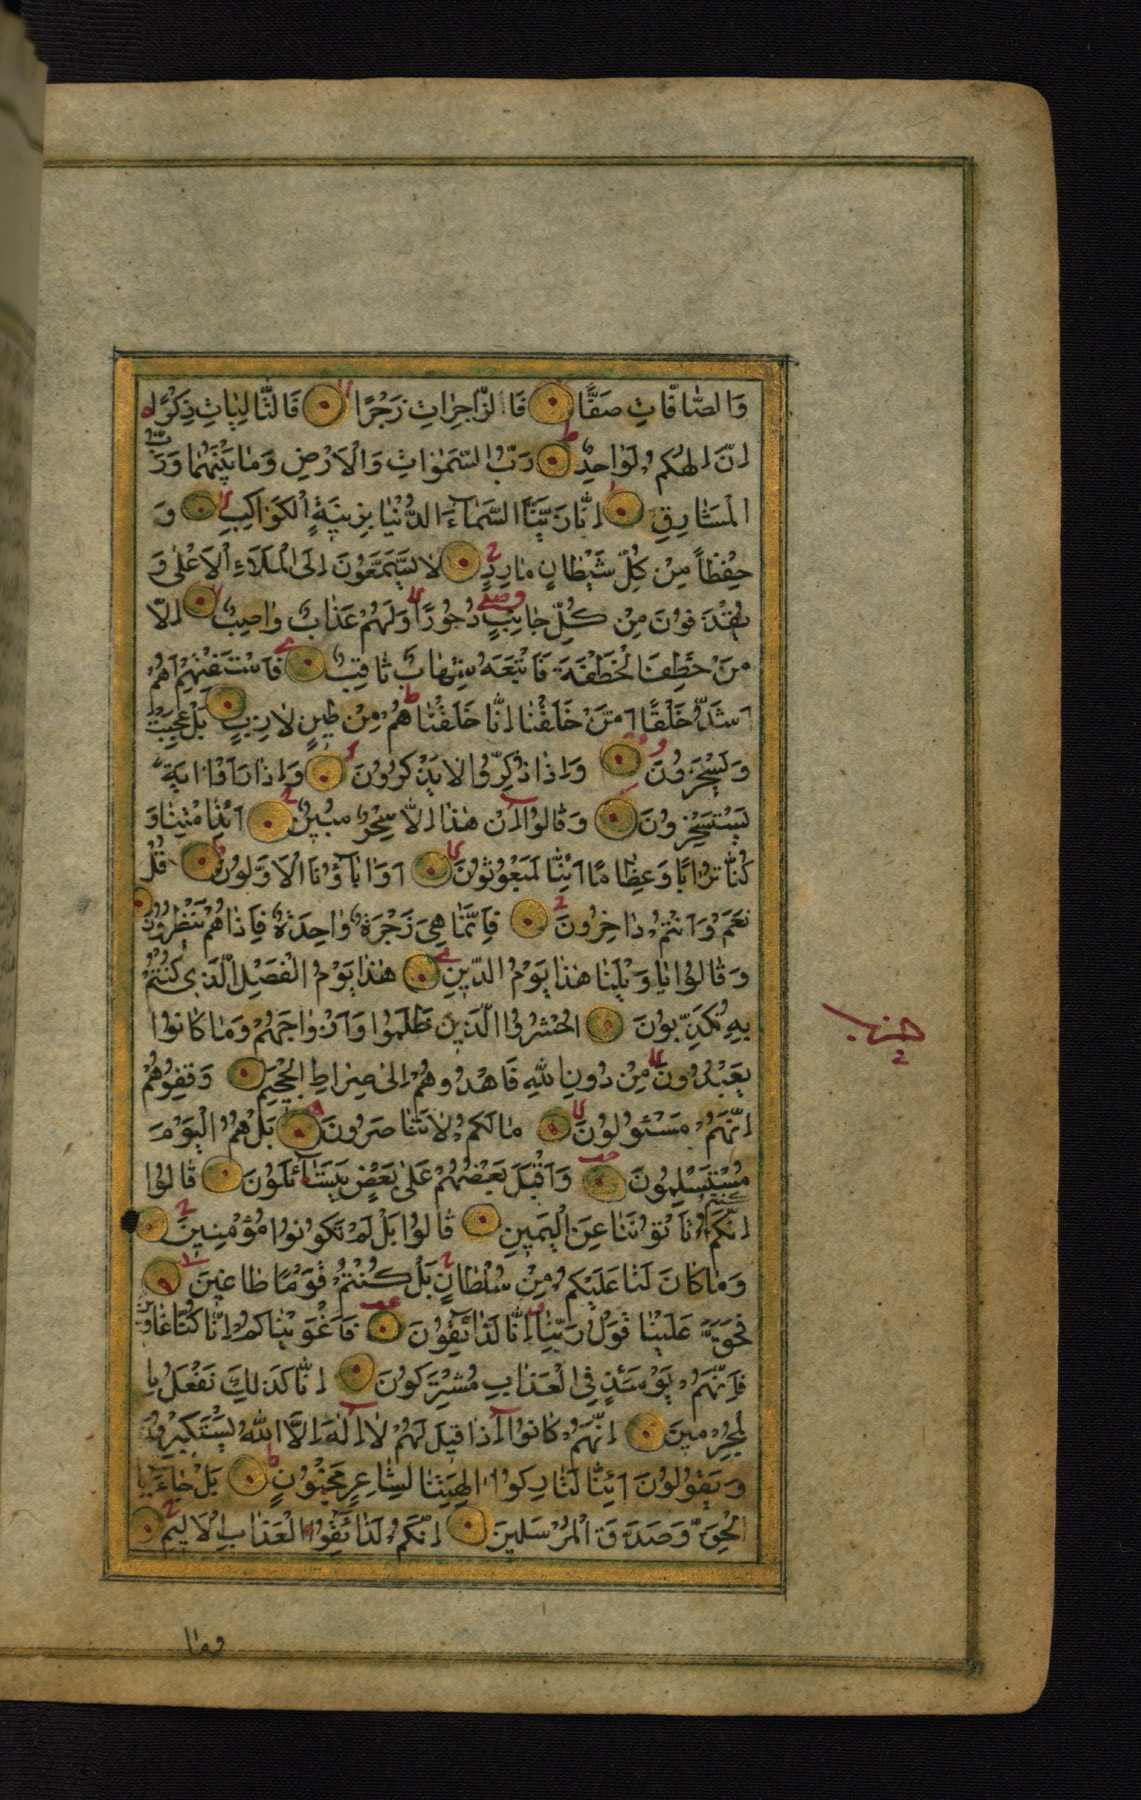 وَالصَّافَّاتِ صَفًّا فَالزَّاجِرَاتِ زَجْرًا فَالتَّالِيَاتِ ذِكْرًا
اِنَّ اِلٰهَكُمْ لَوَاحِدٌ رَبُّ السَّمٰوَاتِ وَالْاَرْضِ وَمَا بَيْنَهُمَا وَرَبُّ
الْمَشَارِقِ اِنَّا زَيَّنَّا السَّمَآءَ الدُّنْيَا بِزِينَةٍ اِلْكَوَاكِبِ وَ
حِفْظًا مِنْ كُلِّ شَيْطَانٍ مَارِدٍ لَا يَسَّمَّعُونَ اِلَى الْمَلَاءِ الْاَعْلٰى وَ
يُقْذَفُونَ مِنْ كُلِّ جَانِبٍ دُحُورًا وَلَهُمْ عَذَابٌ وَاصِبٌ اِلَّا
مَنْ خَطِفَ الْخَطْفَةَ فَاَتْبَعَهُ شِهَابٌ ثَاقِبٌ فَاسْتَفْتِهِمْ اَهُمْ
اَشَدُّ خَلْقًا اَمْ مَنْ خَلَقْنَا اِنَّا خَلَقْنَاهُمْ مِنْ طِينٍ لَازِبٍ بَلْ عَجِبْتَ
وَيَسْخَرُونَ وَاِذَا ذُكِّرُوا لَا يَذْكُرُونَ وَاِذَا رَاَوْا اٰيَةً
يَسْتَسْخِرُونَ وَقَالُوا اِنْ هٰذَا اِلَّا سِحْرٌ مُبِينٌ اَئِذَا مِتْنَا وَ
كُنَّا تُرَابًا وَعِظَامًا اَئِنَّا لَمَبْعُوثُونَ اَوَاٰبَآؤُنَا الْاَوَّلُونَ قُلْ
نَعَمْ وَاَنْتُمْ دَاخِرُونَ فَاِنَّمَا هِيَ زَجْرَةٌ وَاحِدَةٌ فَاِذَا هُمْ يَنْظُرُونَ
وَقَالُوا يَا وَيْلَنَا هٰذَا يَوْمُ الدِّينِ هٰذَا يَوْمُ الْفَصْلِ الَّذِي كُنْتُمْ
بِهِ تُكَذِّبُونَ اُحْشُرُوا الَّذِينَ ظَلَمُوا وَاَزْوَاجَهُمْ وَمَا كَانُوا
يَعْبُدُونَ مِنْ دُونِ اللهِ فَاهْدُوهُمْ اِلٰى صِرَاطِ الْجَحِيمِ وَقِفُوهُمْ
اِنَّهُمْ مَسْئُولُونَ مَا لَكُمْ لَا تَنَاصَرُونَ بَلْ هُمُ الْيَوْمَ
مُسْتَسْلِمُونَ وَاَقْبَلَ بَعْضُهُمْ عَلٰى بَعْضٍ يَتَسَآئَلُونَ قَالُوا
اِنَّكُمْ كُنْتُمْ تَاْتُونَنَا عَنِ الْيَمِينِ قَالُوا بَلْ لَمْ تَكُونُوا مُؤْمِنِينَ
وَمَا كَانَ لَنَا عَلَيْكُمْ مِنْ سُلْطَانٍ بَلْ كُنْتُمْ قَوْمًا طَاغِينَ
فَحَقَّ عَلَيْنَا قَوْلُ رَبِّنَا اِنَّا لَذَآئِقُونَ فَاَغْوَيْنَاكُمْ اِنَّا كُنَّا غَاوِينَ
فَاِنَّهُمْ يَوْمَئِذٍ فِي الْعَذَابِ مُشْتَرِكُونَ اِنَّا كَذٰلِكَ نَفْعَلُ بِا
لْمُجْرِمِينَ اِنَّهُمْ كَانُوا اِذَا قِيلَ لَهُمْ لَا اِلٰهَ اِلَّا اللهُ يَسْتَكْبِرُونَ
وَيَقُولُونَ اَئِنَّا لَتَارِكُوا اٰلِهَتِنَا لِشَاعِرٍ مَجْنُونٍ بَلْ جَآءَ بِا
لْحَقِّ وَصَدَّقَ الْمُرْسَلِينَ اِنَّكُمْ لَذَآئِقُوا الْعَذَابِ الْاَلِيمِ
وما
حزب